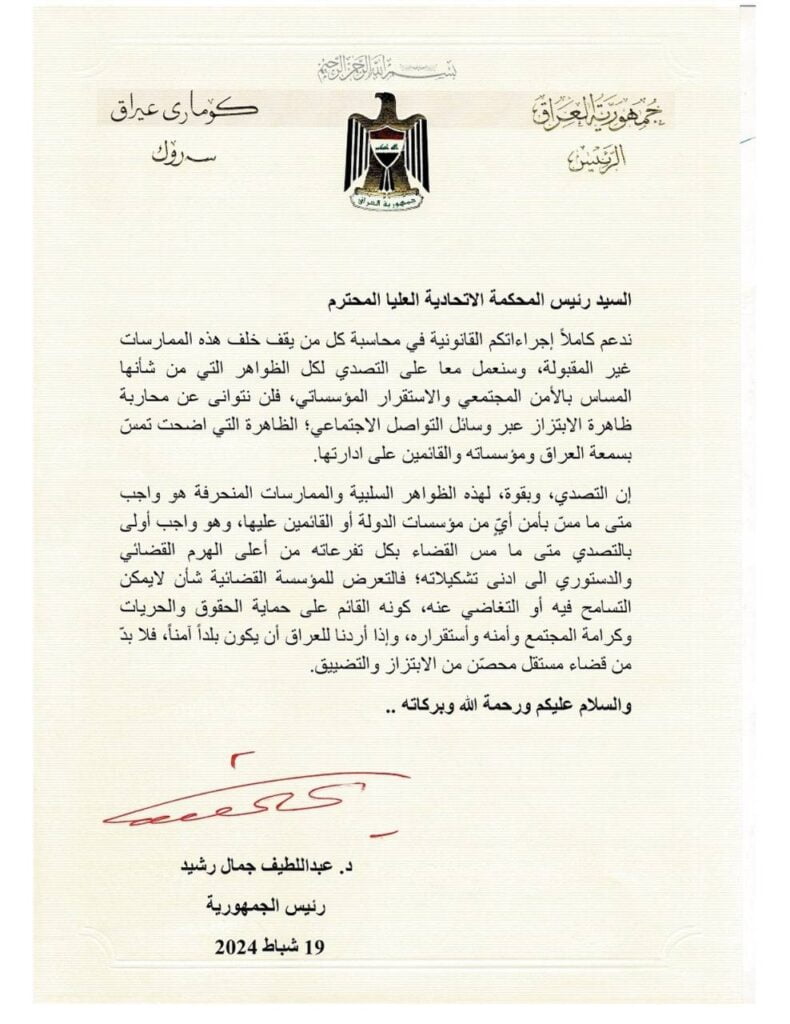 بسم الله الرحمن الرحيم
جمهورية العراق
الرئيس
كۆماری عیراق
سەرۆك
جمهورية العراق
السيد رئيس المحكمة الاتحادية العليا المحترم
ندعم كاملاً إجراءاتكم القانونية في محاسبة كل من يقف خلف هذه الممارسات
غير المقبولة، وسنعمل معا على التصدي لكل الظواهر التي من شأنها
المساس بالأمن المجتمعي والاستقرار المؤسساتي، فلن نتوانى عن محاربة
ظاهرة الابتزاز عبر وسائل التواصل الاجتماعي؛ الظاهرة التي اضحت تمسّ
بسمعة العراق ومؤسساته والقائمين على ادارتها.
إن التصدي، وبقوة، لهذه الظواهر السلبية والممارسات المنحرفة هو واجب
متى ما مسّ بأمن أيٍّ من مؤسسات الدولة أو القائمين عليها، وهو واجب أولى
بالتصدي متى ما مس القضاء بكل تفرعاته من أعلى الهرم القضائي
والدستوري الى ادنى تشكيلاته؛ فالتعرض للمؤسسة القضائية شأن لايمكن
التسامح فيه أو التغاضي عنه، كونه القائم على حماية الحقوق والحريات
وكرامة المجتمع وأمنه وأستقراره، وإذا أردنا للعراق أن يكون بلداً آمناً، فلا بدّ
من قضاء مستقل محصّن من الابتزاز والتضييق.
والسلام عليكم ورحمة الله وبركاته ..
د. عبداللطيف جمال رشيد
رئيس الجمهورية
19 شباط 2024